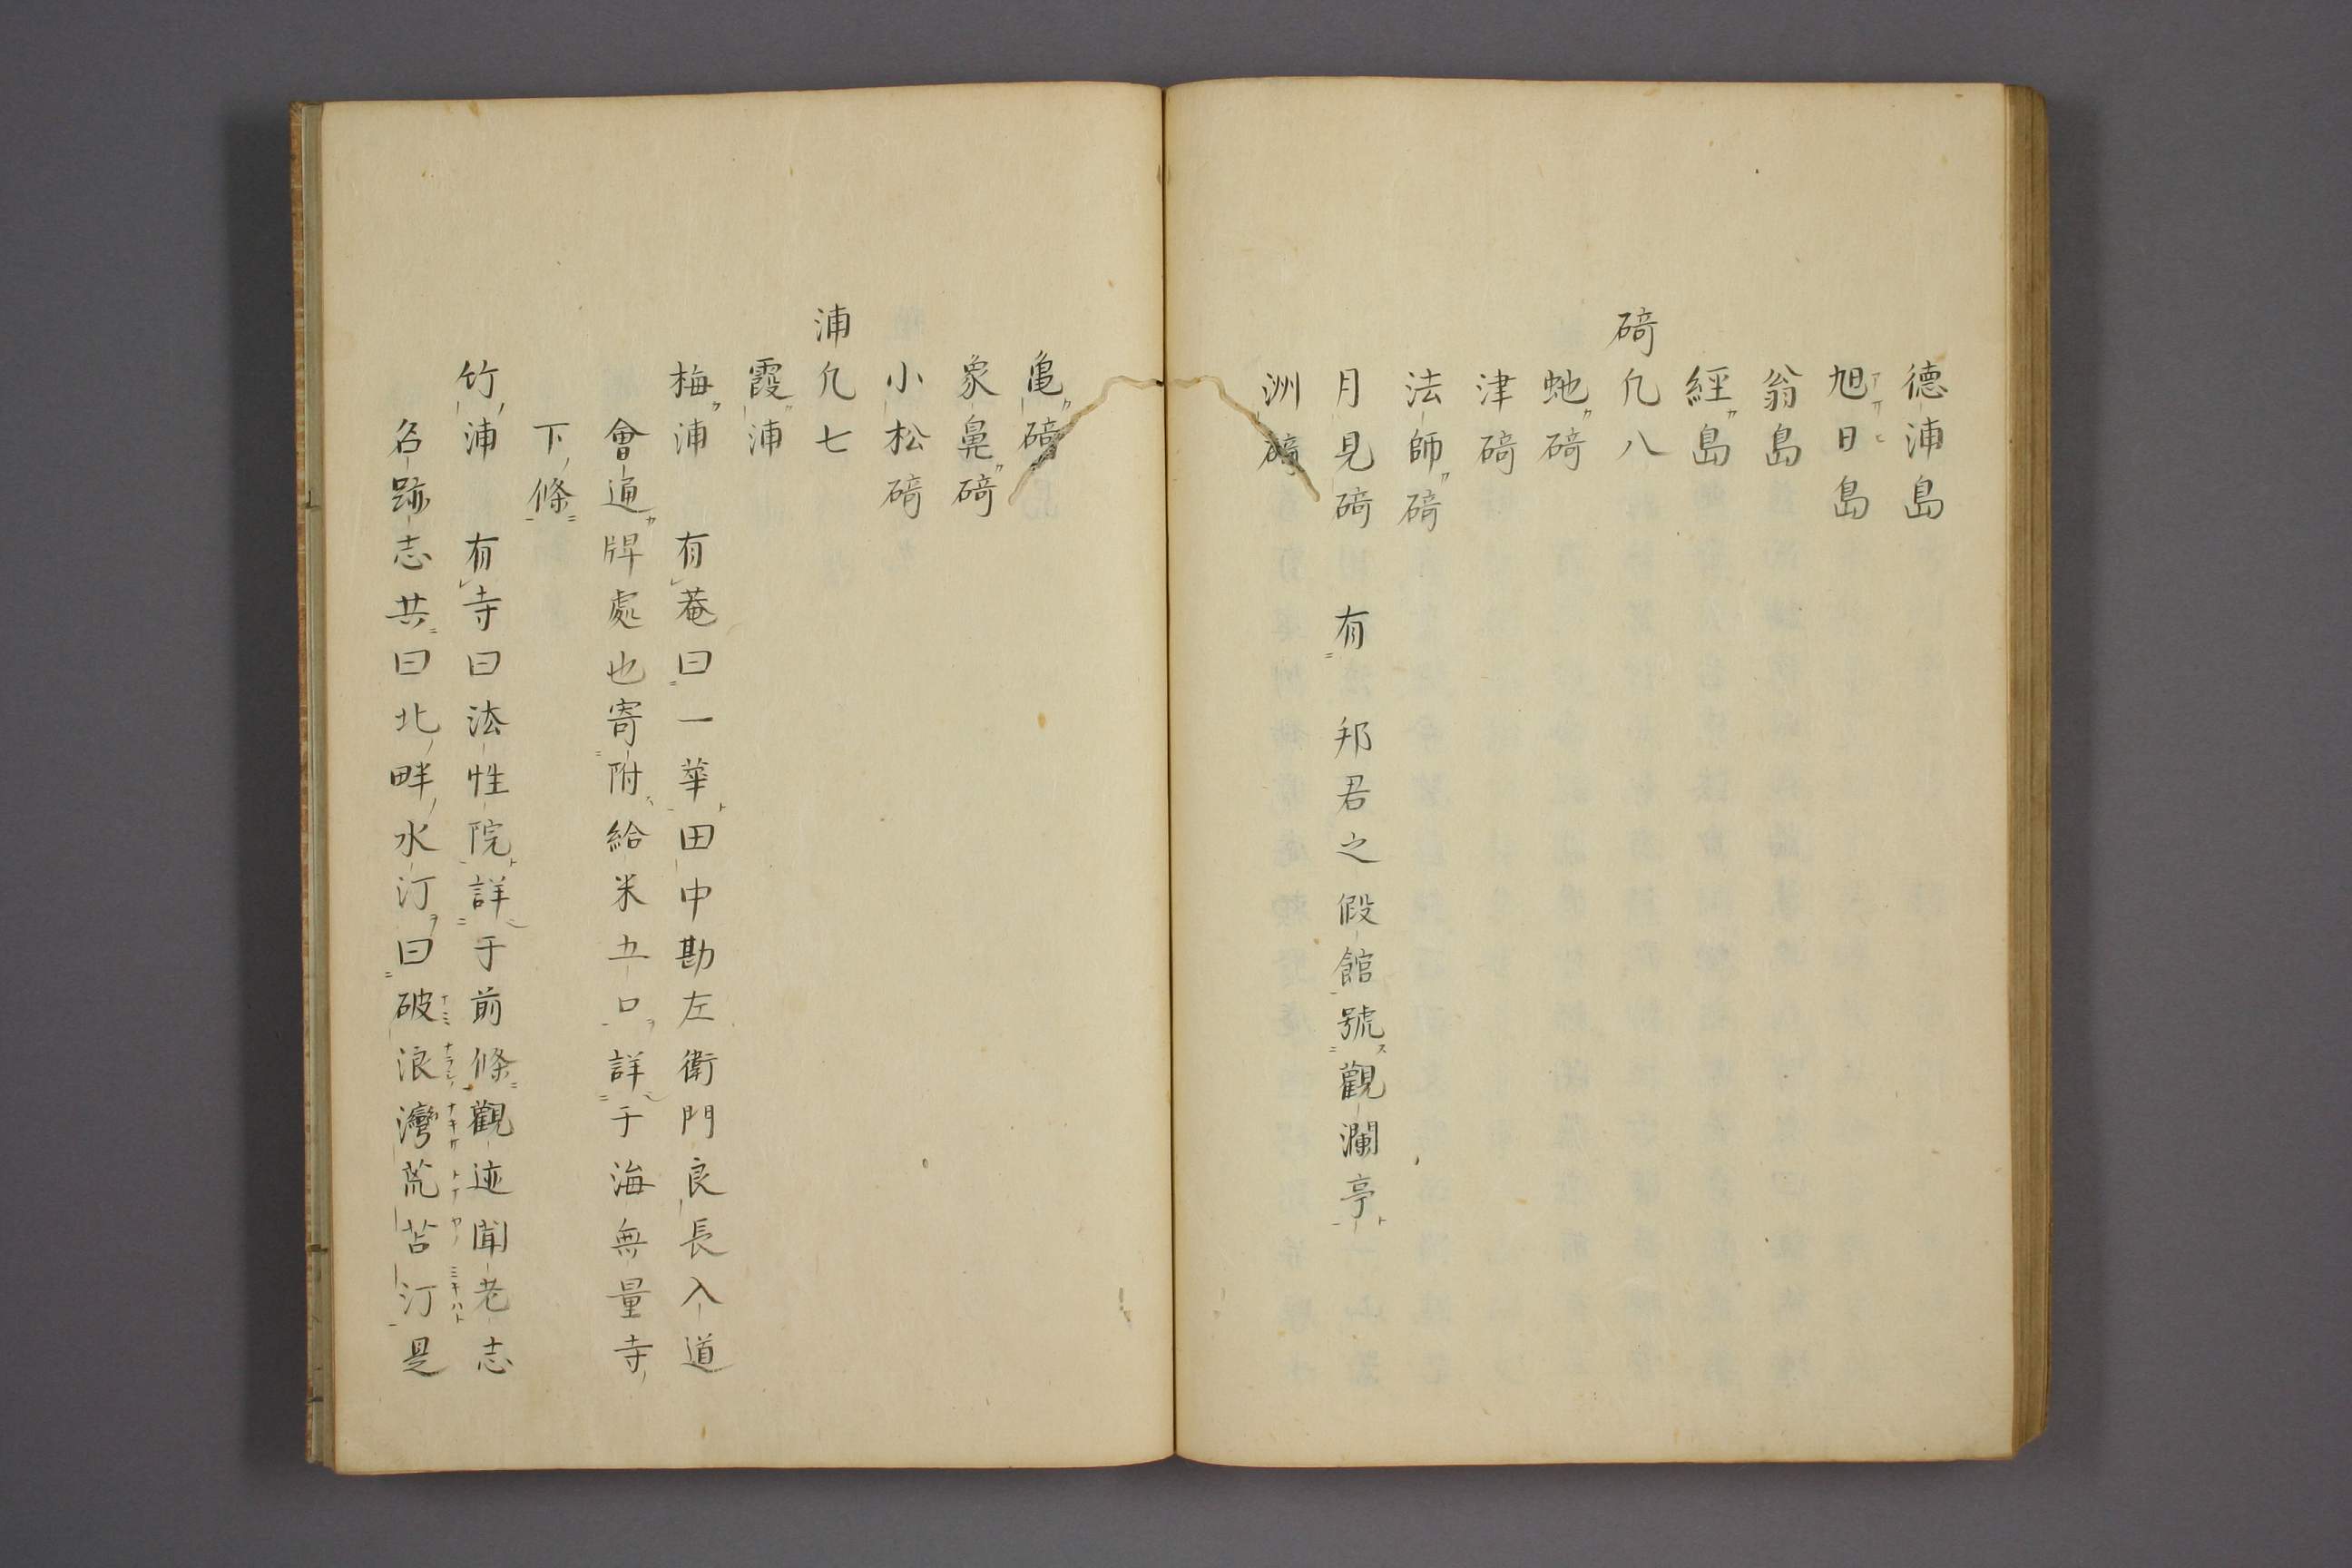 德浦島
旭日島
翁島
經島
碕凢八
虵碕
津碕
法師碕
月見碕　有　邦君之假館號觀瀾亭
洲碕
亀碕
象鼻碕
小松碕
浦凢七
霞浦
梅浦　有菴曰一華田中勘左衛門良長入道
會通牌處也寄附給米五口詳于海無量寺
下條
竹浦　有寺曰法性院詳于前條觀迹聞老志
名跡志共曰北畔水汀曰破浪灣荒苫汀是